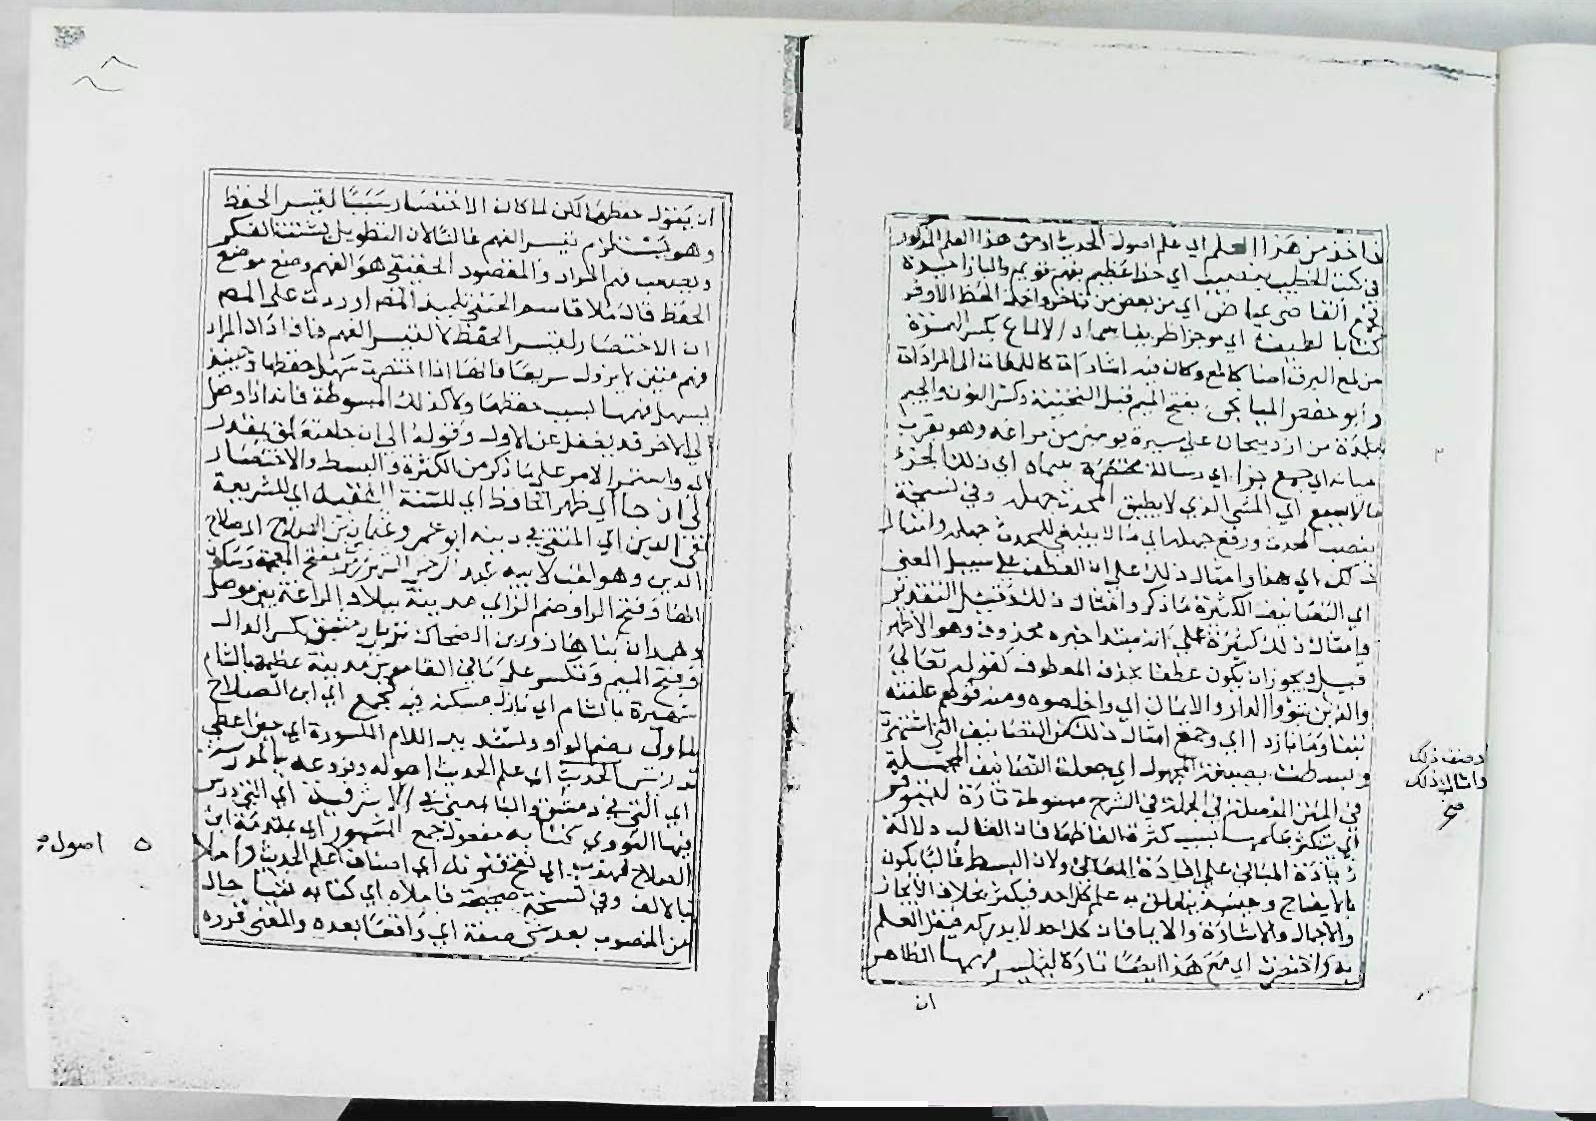 فاخذ من هذا العلم اي علم اصول الحديث او من هذا العلم المذكور
في كتب الخطيب بنصيب اي حظ عظيم بفهم قويم
فجمع القاضي عياض اي من بعض من تاخر واخذ الحظ الاوفر
كتابا لطيفا اي موجزا ظريفا سماه الالماع بكسر الهمزة
من لمع البرق اضا كالمع وكان فيه اشارات كاللمعات الى المرادات
وابو حفص الميانجي بفتح الميم قبل التحتية وكسر النون والجيم
بلدة من اذربيجان على مسيرة يومين من مراغه وهو بقرب
ميانه اي جمع جزا اي رسالة مختصرة سماه اي ذلك الجزء
مالا يسع اي الشي الذي لا يطيق المحدث جهله وفي نسخة
بنصب المحدث ورفع جهله اي مالا ينبغي للمحدث جهله وامثال
ذلك اي هذا وامثال ذلك على ان العطف على سبيل المعنى
اي التصانيف الكثيرة ما ذكر وامثال ذلك وقيل التقدير
وامثال ذلك كثيرة على انه مبتدا خبره محذوف وهو الاظهر
قيل ويجوز ان يكون عطفا بحذف المعطوف كقوله تعالى
والذين تبوؤا الدار والايمان اي واخلصوه ومنه قولهم علفته
تبنا وما باردا اي وجمع امثال ذلك من التصانيف التي اشتهرت
وبسطت بصيغة المجهول اي جعلت التصانيف المجملة
في المتن المفصلة في الجملة في الشرح مبسوطة تارة ليتوفر
اي يتكثر علمها بسبب كثرة الفاظها فان الغالب دلالة
زيادة المباني على افادة المعاني ولان البسط غالبا يكون
بالايضاح وحينئذ يتعلق به علم كل احد فيكثر بخلاف الايجاز
والاجمال والاشارة والايما فان كل احد لا يدركه فيقل العلم
به واختصرت اي مع هذا ايضا تارة ليتيسر فهمها الظاهر
ان
وصنف ذلك
وامثال ذلك
صح
ان يقول حفظها لكن لما كان الاختصار سببا لتيسر الحفظ
وهو يستلزم تيسر الفهم غالبا لان التطويل يشتت الفكر
ويصعب فهم المراد والمقصود الحقيقي هو الفهم وضع موضع
الحفظ قال ملا قاسم الحنفي تلميذ المص اوردت على المص
ان الاختصار لتيسر الحفظ لا لتيسر الفهم فافاد ان المراد
فهم متين لا يزول سريعا فانها اذا اختصرت سهل حفظها وحينئذ
يسهل فهمها بسبب حفظها ولا كذلك المبسوطة فانه اذا وصل
الى الاخر قد يغفل عن الاول وقوله الى ان جا متعلق بمقدر
اي واستمر الامر على ما ذكر من الكثرة والبسط والاختصار
الى ان جا اي ظهر الحافظ اي للسنة الفقيه اي للشريعة
تقي الدين اي المتقي في دينه ابو عمرو عثمان بن الصلاح اي صلاح
الدين وهو لقب لابيه عبد الرحمن الشهرزوري بفتح المعجمة وسكون
الها وفتح الرا وضم الزاي مدينة ببلاد المراغة بين موصل
وهمدان بناها زور بن الضحاك نزيل دمشق بكسر الدال
وفتح الميم وتكسر على ما في القاموس مدينة عظيمة بالشام
شهيرة بالشام اي نازل مسكنه فيه فجمع اي ابن الصلاح
لما ولي بضم الواو وتشديد اللام المكسورة اي حين اعطي
تدريس الحديث اي علم الحديث اصوله وفروعه بالمدرسة
اي التي في دمشق والبا بمعنى في الاشرفية اي التي درس
فيها النووي كتابه مفعول جمع المشهور اي بمقدمة ابن
الصلاح فهذب اي نقح فنونه اي اصناف علم الحديث واملاه
بالالف وفي نسخة صحيحة فاملاه اي كتابه شيا حال
من المنصوب بعد شي صفة اي واقعا بعده والمعنى قرره
٥ اصول